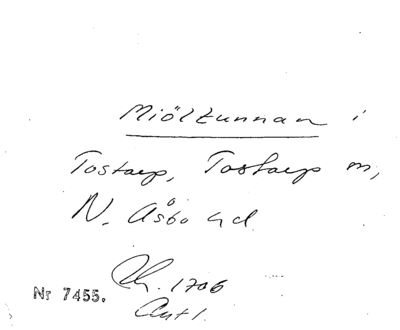 Miöltunnan i
Tostarp, Tostarp m,
N. Åsbo hd.
Ch. 1706
Nr 7455.
Ant 1.